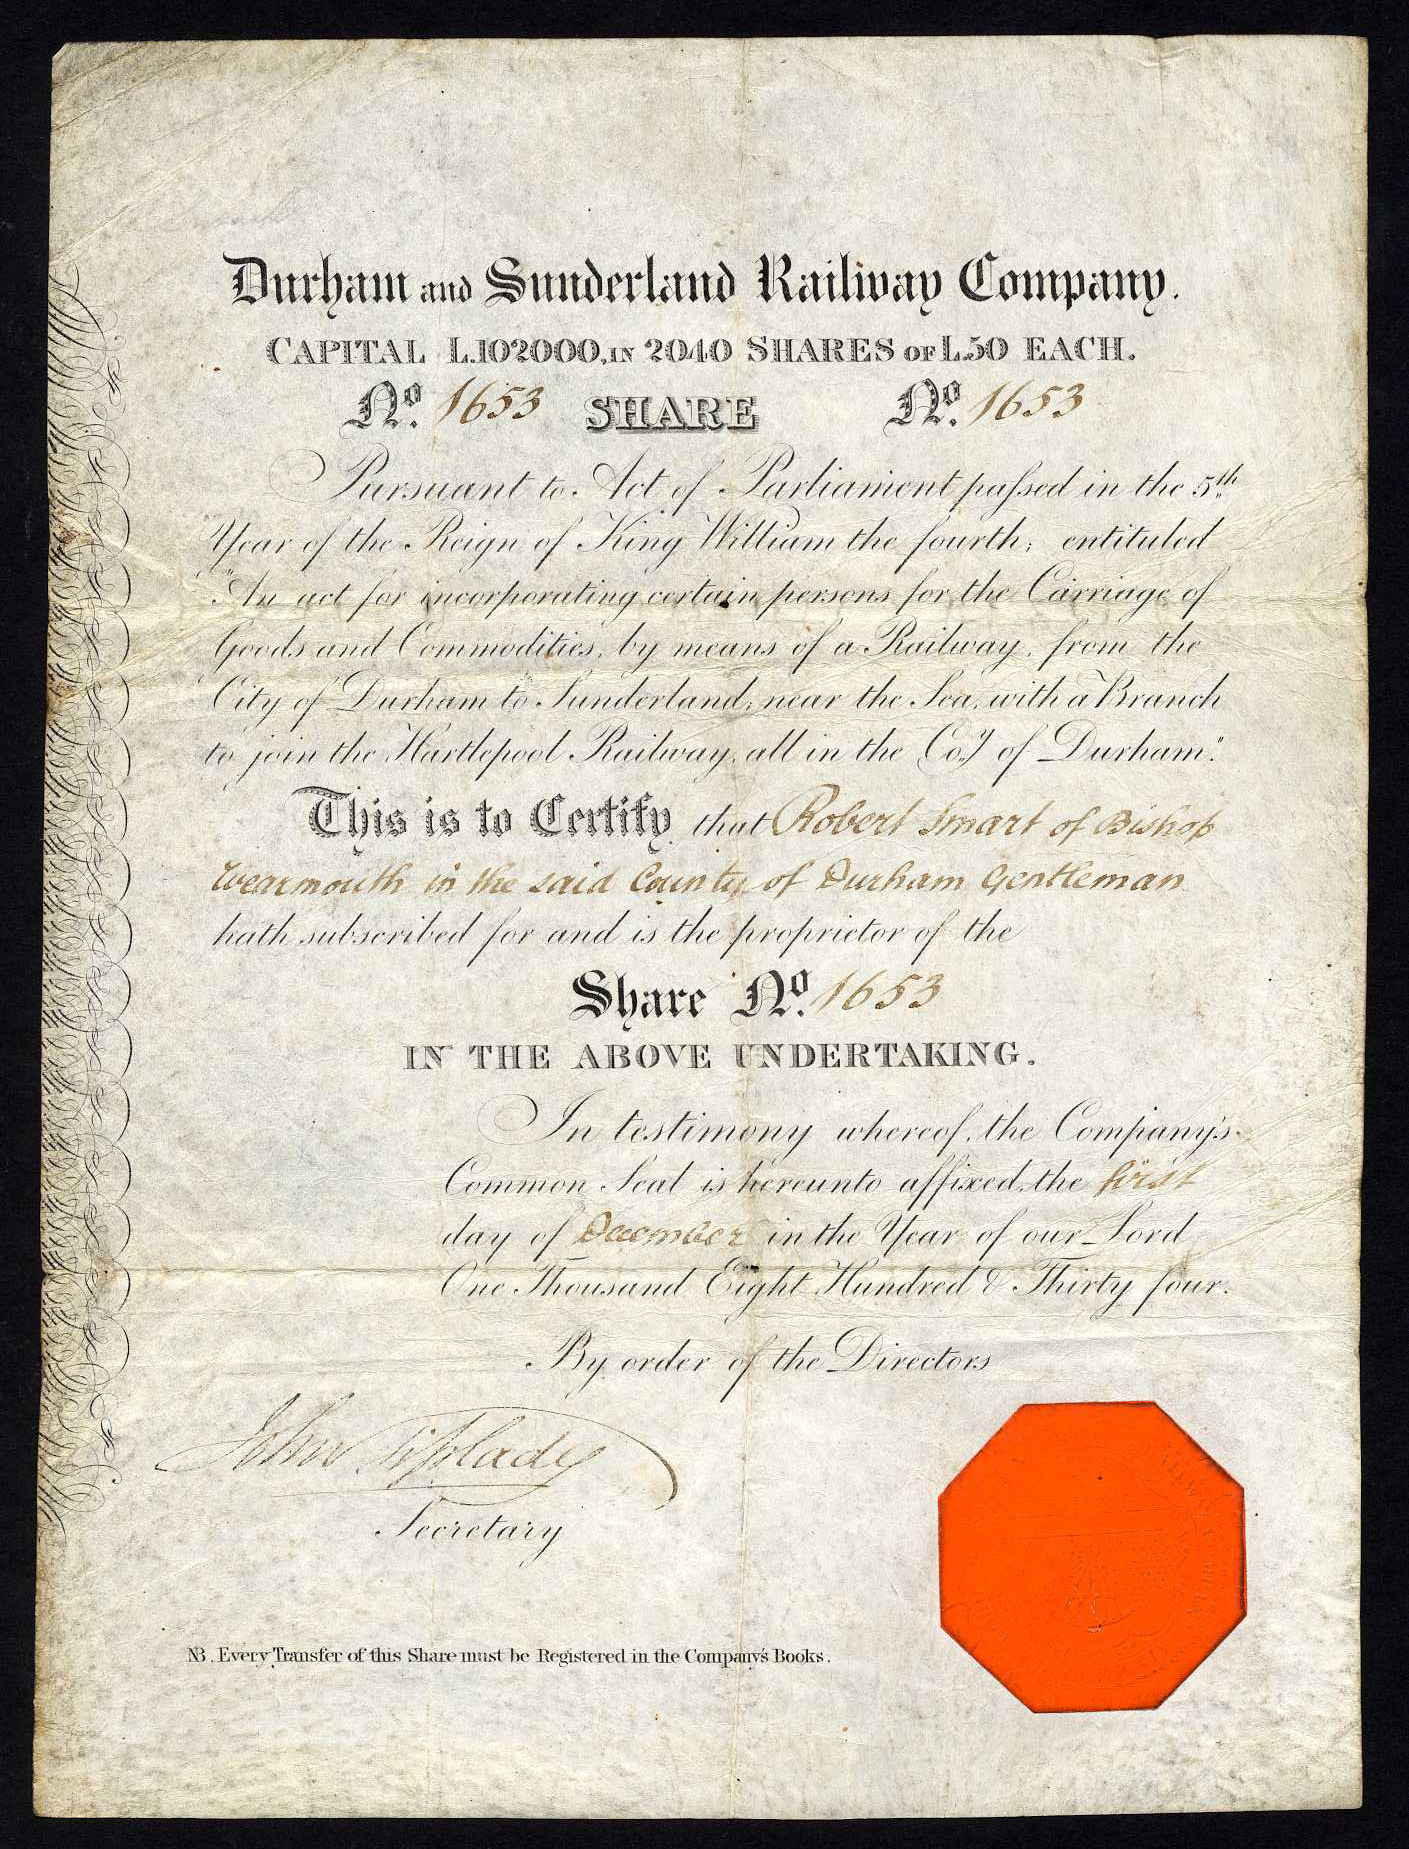 Durham and Sunderland Railway Company.
CAPITAL L.102000, IN 2040 SHARES OF L.50 EACH.
No. 1653 SHARE No. 1653
Pursuant to Act of Parliament paſsed in the 5th
Year of the Reign of King William the fourth; entituled
"An act for incorporating certain persons for the Carriage of
Goods and Commodities, by means of a Railway, from the
City of Durham to Sunderland, near the Sea, with a Branch
to join the Hartlepool Railway, all in the Coy of Durham."
This is to Certify that Robert Smart of Bishop
Wearmouth in the said County of Durham Gentleman
hath subscribed for and is the proprietor of the
Share No. 1653
IN THE ABOVE UNDERTAKING.
In testimony whereof, the Company's
Common Seal is hereunto affixed, the first
day of December in the Year of our Lord
One Thousand Eight Hundred & Thirty four.
By order of the Directors
John Tiplady
Secretary
NB. Every Transfer of this Share must be Registered in the Company's Books.